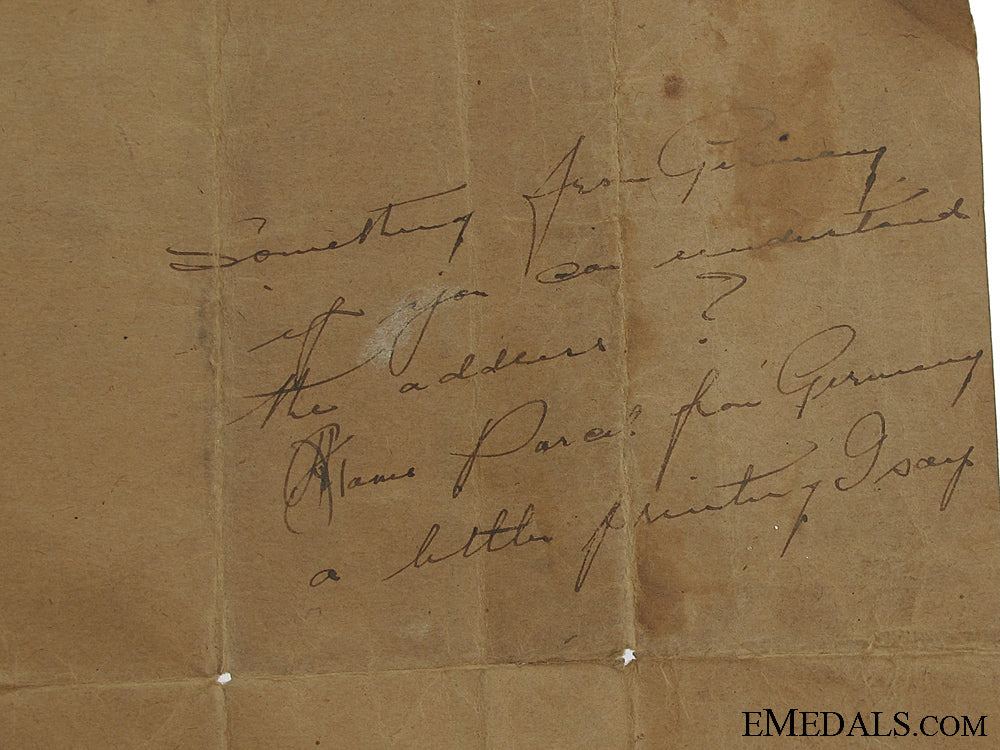 Something from Germany.
if you can understand
the address ?
Name Parcel from Germany
a little printing I say
EMEDALS.COM